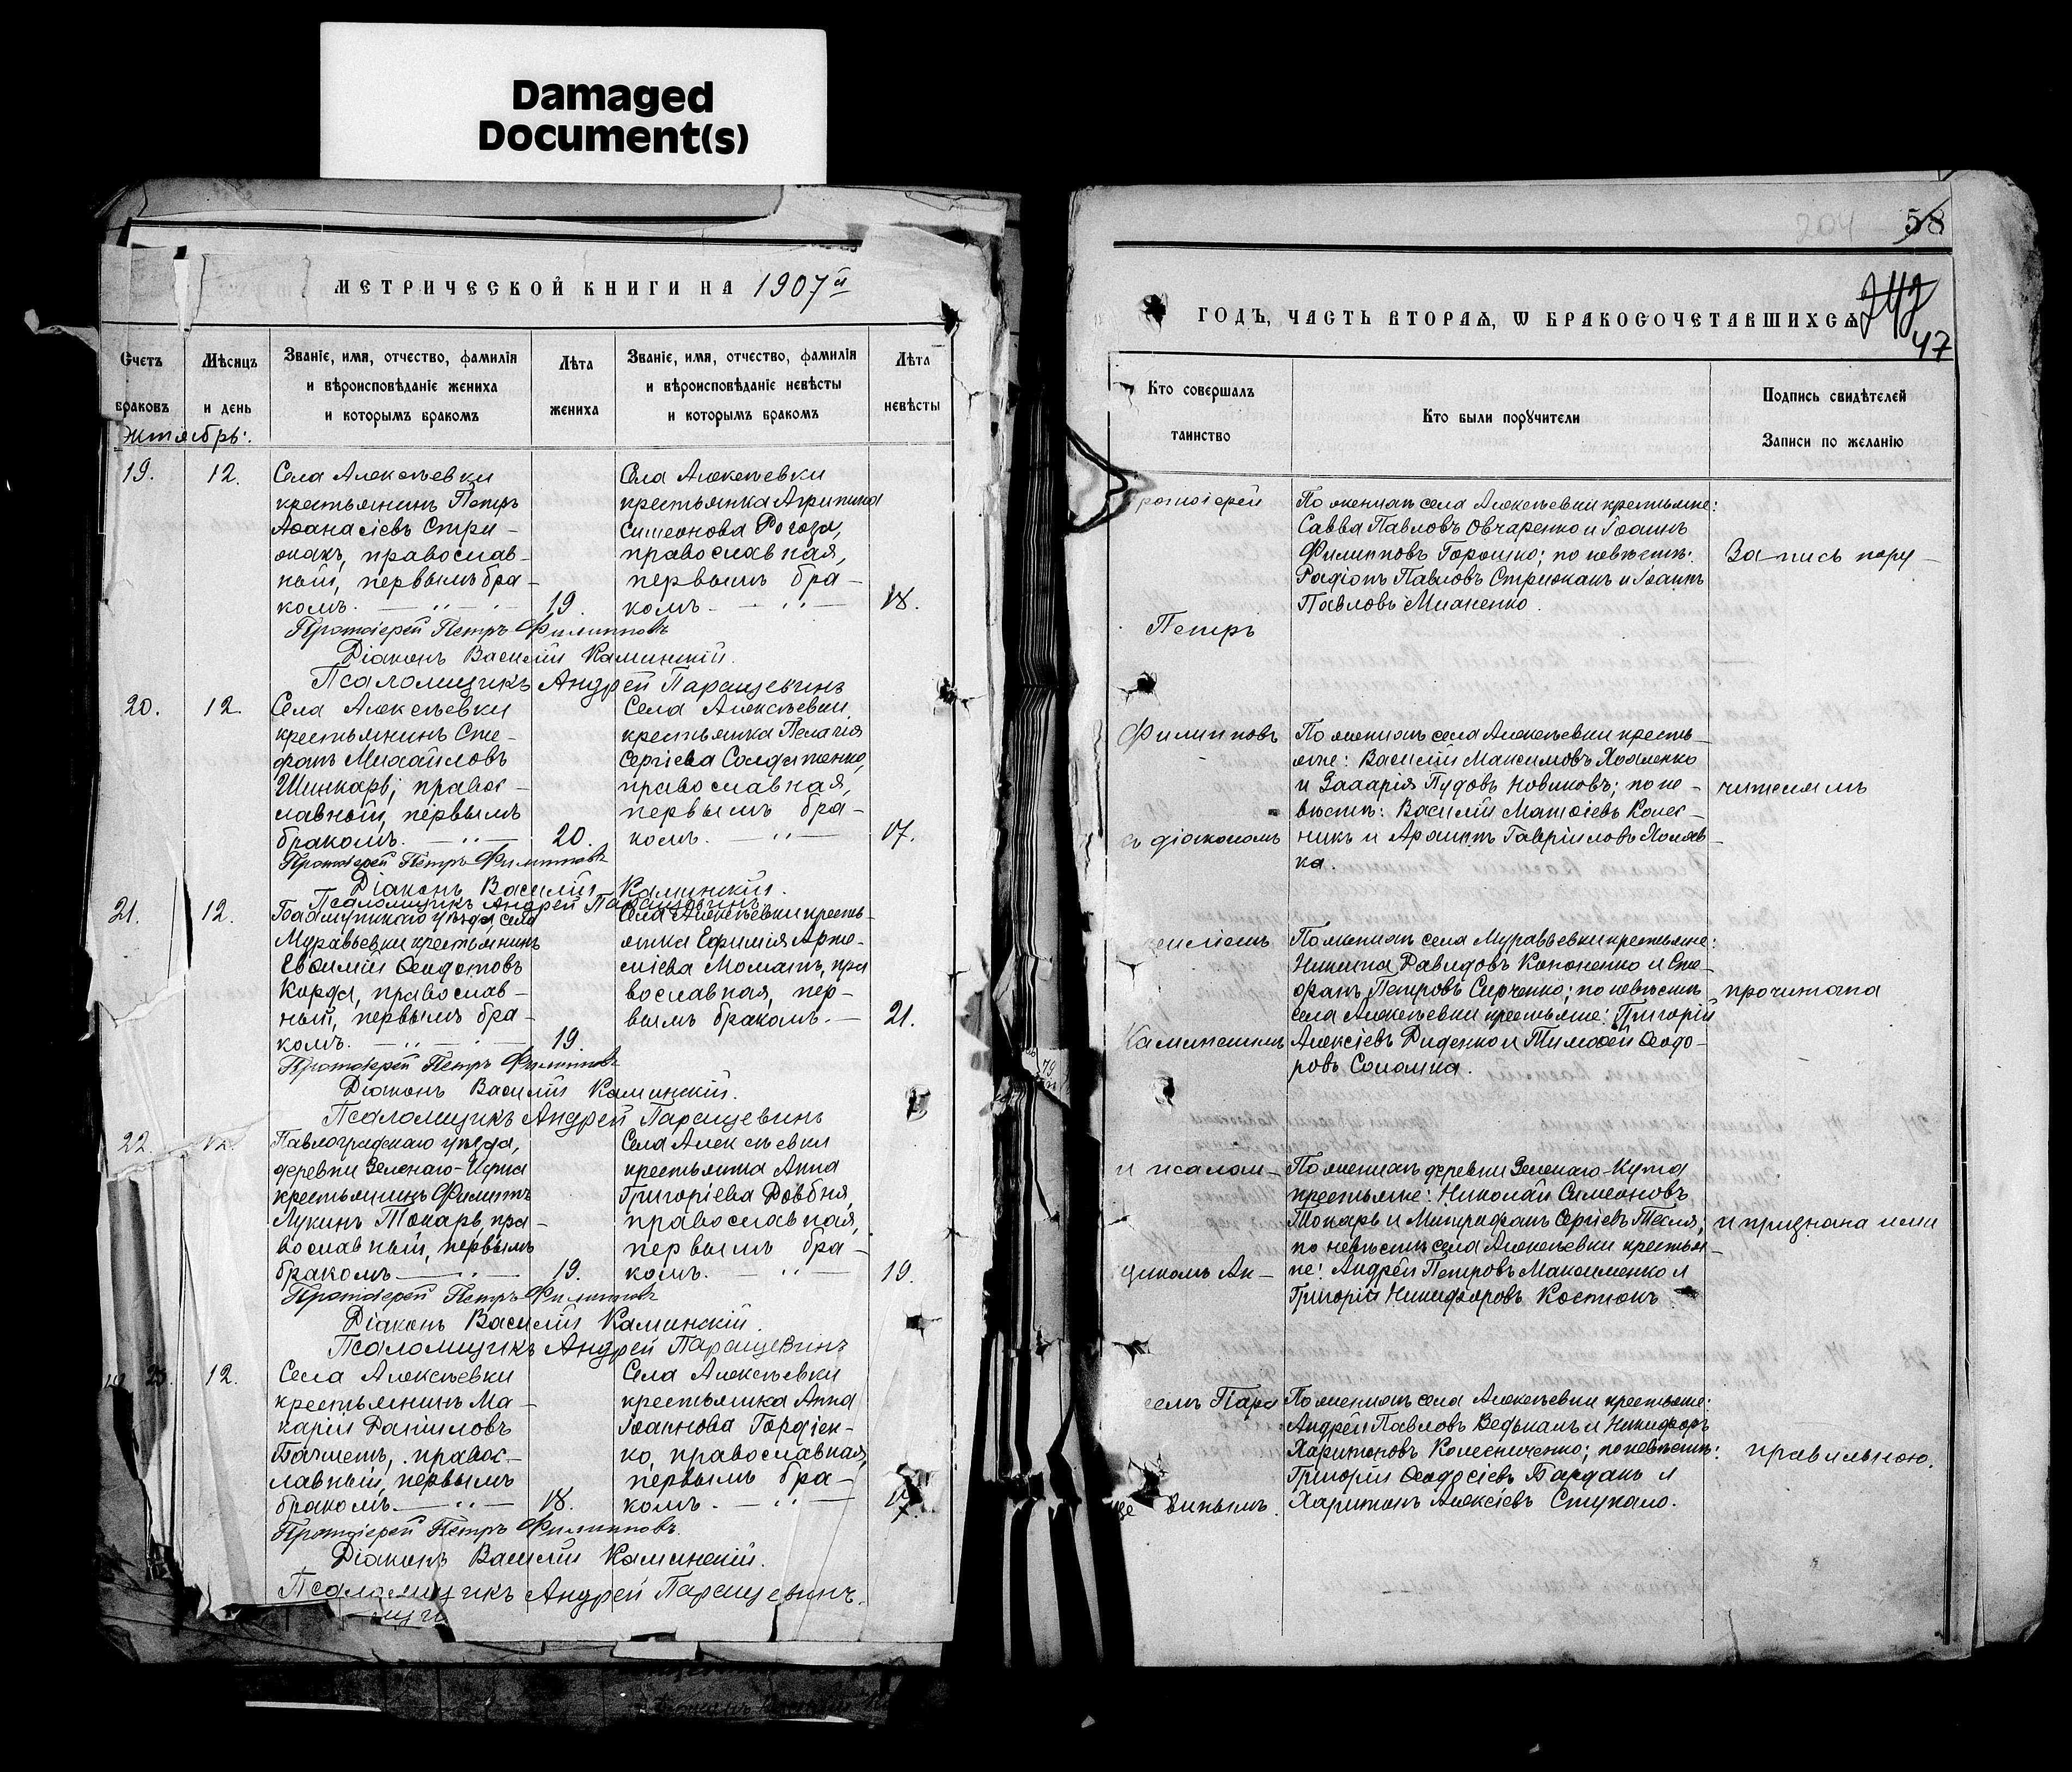 Damaged
Document(s)
МЕТРИЧЕСКОЙ КНИГИ НА 1907й
Счетъ
браковъ
Мѣсяцъ
и день
Званіе, имя, отчество, фамилія
и вѣроисповѣданіе жениха
и которымъ бракомъ
Лѣта
жениха
Званіе, имя, отчество, фамилія
и вѣроисповѣданіе невѣсты
и которымъ бракомъ
Лѣта
невѣсты
19.
12.
Села Алексѣевки
крестьянинъ Петръ
Аѳанасіевъ Стри-
жакъ, православ-
ный, первымъ бра-
комъ.
19.
Села Алексѣевки
крестьянка Агрипина
Симеонова Рогоза,
православная,
первымъ бра-
комъ.
18.
Протоіерей Петръ Филипповъ
Діаконъ Василій Каминскій.
Псаломщикъ Андрей Паращевинъ
20.
12.
Села Алексѣевки
крестьянинъ Сте-
фанъ Михайловъ
Шинкарь, правос-
лавный, первымъ
бракомъ.
20.
Села Алексѣевки
крестьянка Пелагія
Сергіева Солдатенко,
православная,
первымъ бра-
комъ.
17.
Протоіерей Петръ Филипповъ
Діаконъ Василій Каминскій.
Псаломщикъ Андрей Паращевинъ
21.
12.
уѣзда, села
Муравьевки крестьянинъ
Евфимій Ѳеодотовъ
Корда, православ-
ный, первымъ бра-
комъ.
19.
Села Алексѣевки кресть-
янка Ефимія Арте-
міева Моматъ, пра
вославная, пер-
вымъ бракомъ.
21.
Протоіерей Петръ Филипповъ
Діаконъ Василій Каминскій.
Псаломщикъ Андрей Паращевинъ
22.
12.
Павлоградскаго уѣзда,
деревни Зеленаго-Кута
крестьянинъ Филиппъ
Лукинъ Токарь, пра-
вославный, первымъ
бракомъ
19.
Села Алексѣевки
крестьянка Анна
Григоріева Довбня,
православная,
первымъ бра-
комъ.
19.
Протоіерей Петръ Филипповъ
Діаконъ Василій Каминскій.
Псаломщикъ Андрей Паращевинъ
23.
12.
Села Алексѣевки
крестьянинъ Ма-
карій Даніиловъ
правос-
лавный, первымъ
бракомъ.
18.
Села Алексѣевки
крестьянка Анна
Іоаннова Гордіен-
ко, православная,
первымъ бра-
комъ.
17.
Протоіерей Петръ Филипповъ.
Діаконъ Василій Каминскій.
Псаломщикъ Андрей Паращевинъ.
204
58
47
ГОДЪ, ЧАСТЬ ВТОРАЯ, Ѡ БРАКОСОЧЕТАВШИХСЯ
Кто совершалъ
таинство
Кто были поручители
Подпись свидѣтелей
Записи по желанію
ротоіерей
По женихѣ села Алексѣевки крестьяне:
Савва Павловъ Овчаренко и Іоаннъ
Филипповъ Горошко; по невѣстѣ:
Родіонъ Павловъ Стрижакъ и Іоаннъ
Павловъ
Запись пору-
Петръ
Филипповъ
По женихѣ села Алексѣевки кресть-
яне: Василій Максимовъ
и Захарія Пудовъ Новиковъ; по не-
вѣстѣ: Василій Матѳіевъ Колес-
никъ и Гавріиловъ Халяв-
ка.
чителямъ
съ діакономъ
По женихѣ села Муравьевки крестьяне:
Никита Давидовъ Кононенко и Сте-
фанъ Петровъ Сирченко; по невѣстѣ
села Алексѣевки крестьяне: Григорій
Алексіевъ Диденко и Тимофей Ѳеодо-
ровъ Соломка.
прочитана
Каминскимъ
и псалом-
По женихѣ деревни Зеленаго-Кута
крестьяне: Николай Симеоновъ
Токарь и Митрофанъ Сергіевъ Тесля;
по невѣстѣ села Алексѣевки крестья-
не: Андрей Петровъ Максименко и
Григорій Никифоровъ Костюкъ
и признана ими
щикомъ Ан-
еемъ Пара
По женихѣ села Алексѣевки крестьяне:
Андрей Павловъ Ведькалъ и Никифоръ
Харитоновъ Колесниченко; по невѣстѣ:
Григорій Ѳеодосіевъ Бардакъ и
Харитонъ Алексіевъ Стукало.
правильною.
винымъ.